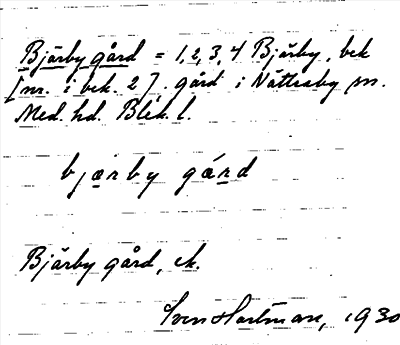 Bjärby gård = 1, 2, 3, 4 Bjärby, bek
[nr. i bek. 2]. gård i Nättraby sn.
Med. hd. Blek. l.
bjærby gá̱rd
Bjärby gård, ek.
Sven Hartman, 1930